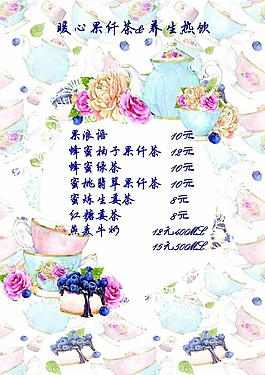 暖心果仟茶&养生热饮
果浪语 10元
蜂蜜柚子果仟茶 12元
蜂蜜绿茶 10元
蜜桃翡翠果仟茶 10元
蜜炼生姜茶 8元
红糖姜茶 8元
燕麦牛奶 12元400ML
15元500ML